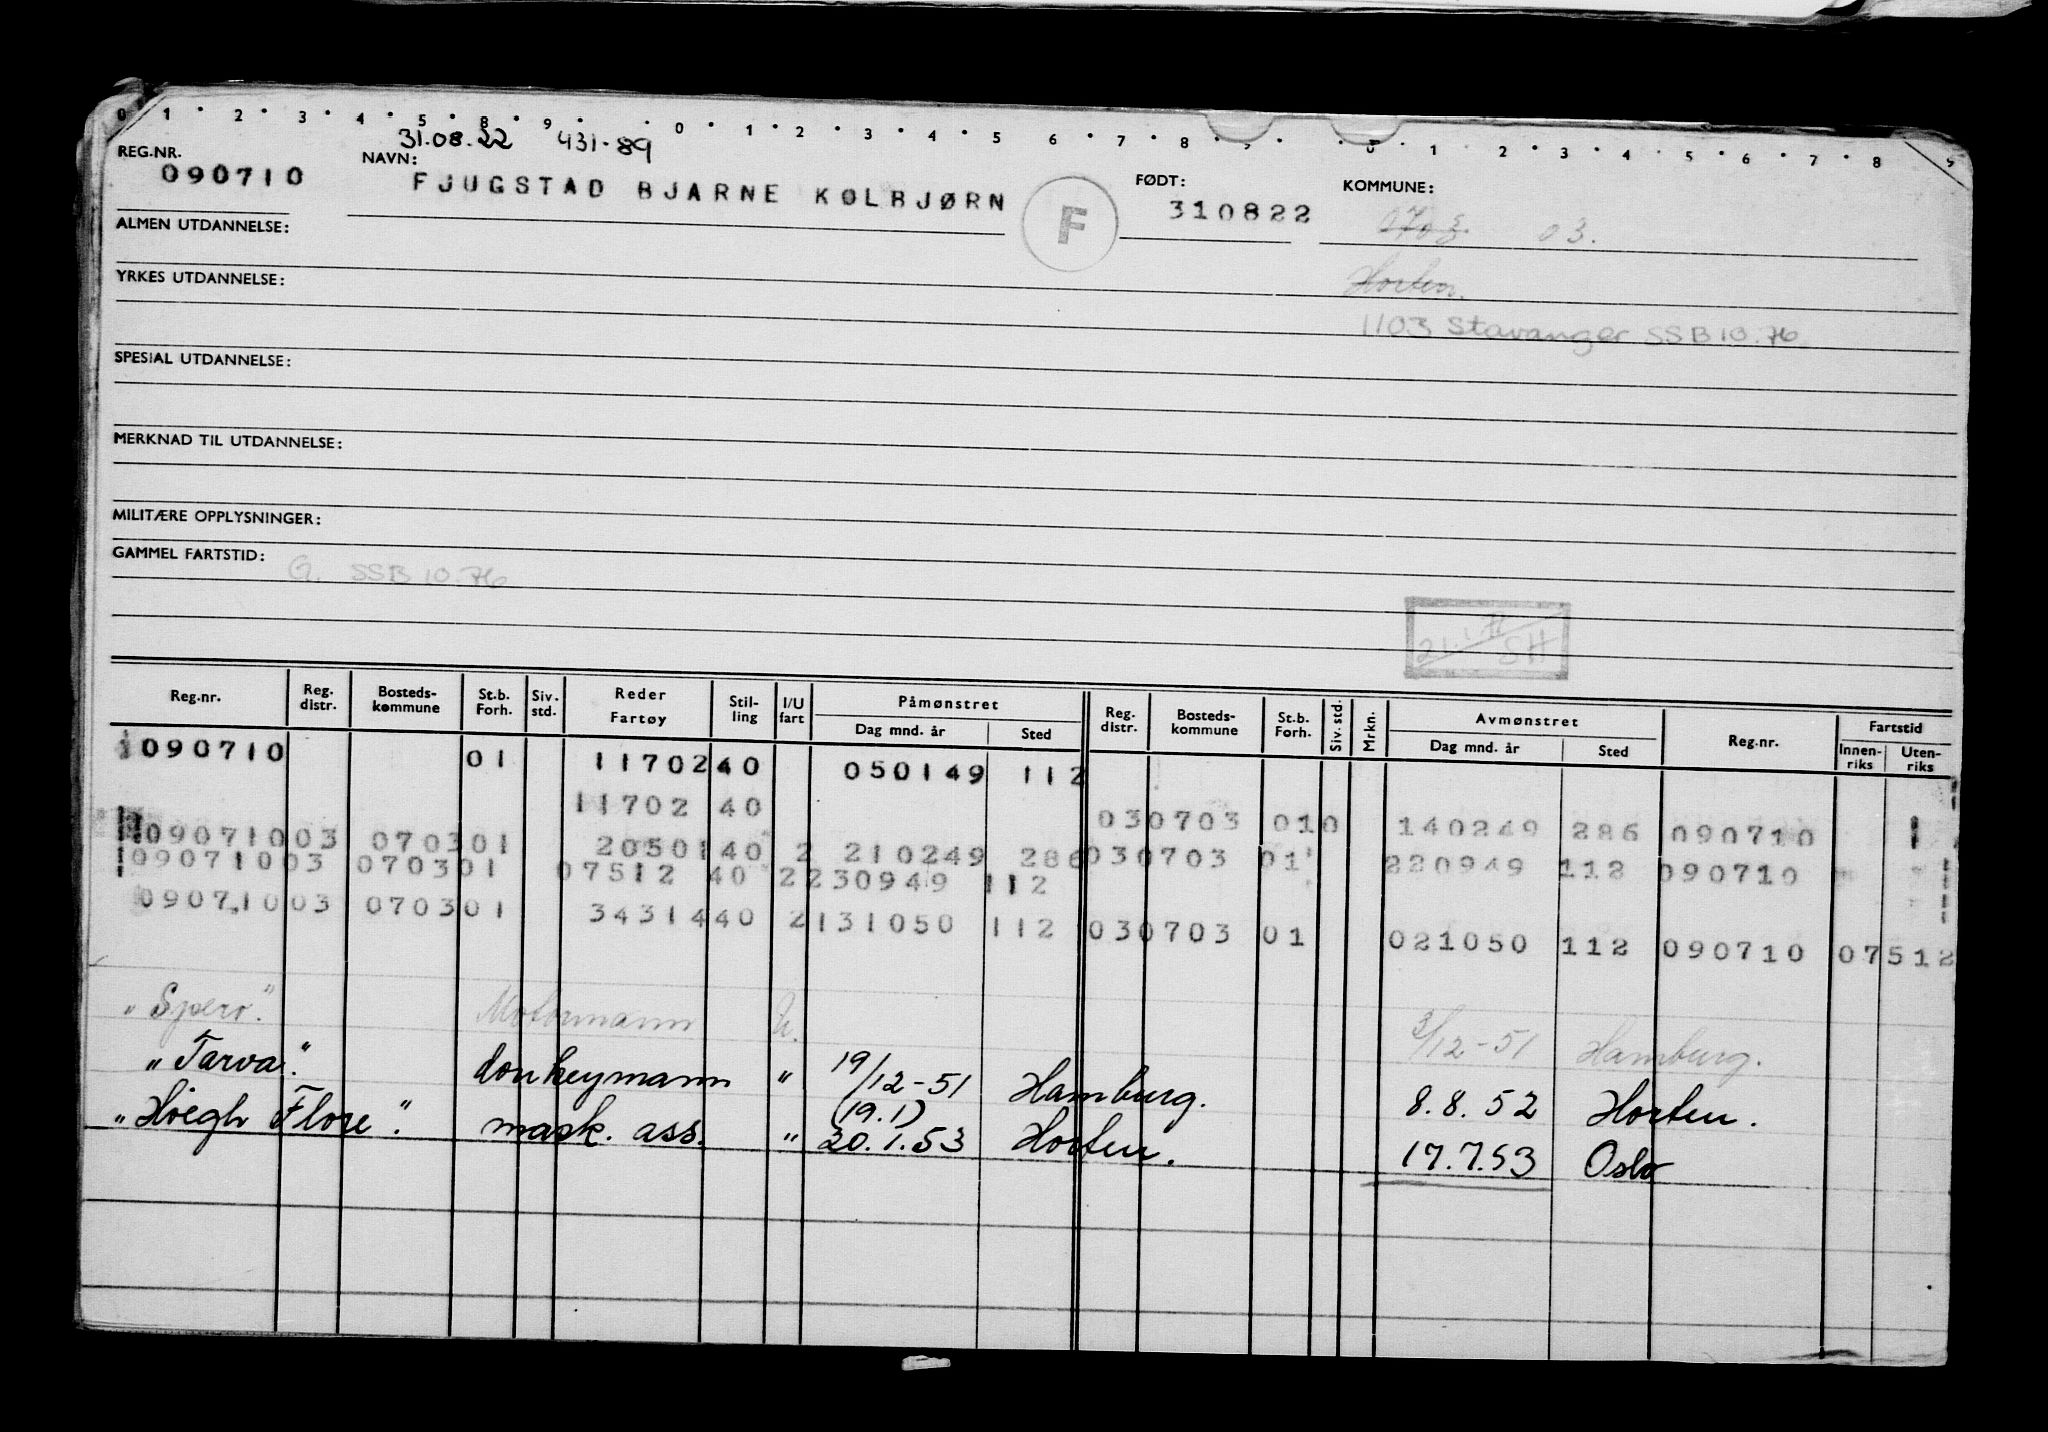 0 1 2 3 4 5 8 9 0 1 2 3 4 5 6 7 8 9 0 1 2 3 4 5 6 7 8 9
31.08.22 431-89
REG.NR. 090710 NAVN: FJUGSTAD BJARNE KOLBJØRN F FØDT: 310822 KOMMUNE:
0703 03.
ALMEN UTDANNELSE:
YRKES UTDANNELSE: Horten.
1103 Stavanger SSB 10.76
SPESIAL UTDANNELSE:
MERKNAD TIL UTDANNELSE:
MILITÆRE OPPLYSNINGER:
GAMMEL FARTSTID: G. SSB 10.76
SH
Reg.nr. Reg. distr. Bosteds-kommune St.b. Forh. Siv. std. Reder Fartøy Stil-ling I/U fart Påmønstret Dag mnd. år Sted Reg. distr. Bosteds-kommune St.b. Forh. Siv. std. Mrkn. Avmønstret Dag mnd. år Sted Reg.nr. Fartstid Innen-riks Uten-riks
1090710 01 1170240 050149 112
11702 40 030703 010 140249 286 090710
09071003 070301 2050140 2 210249 286 030703 01 220949 112 090710
09071003 070301 07512 40 2230949 112
09071003 070301 3431440 2131050 112 030703 01 021050 112 090710 07512
"Spero". Motormann U. 3/12-51 Hamburg.
"Tarva". donkeymann " 19/12-51 Hamburg. 8.8.52 Horten.
(19.1)
"Höegh Flore". mask. ass. " 20.1.53 Horten. 17.7.53 Oslo